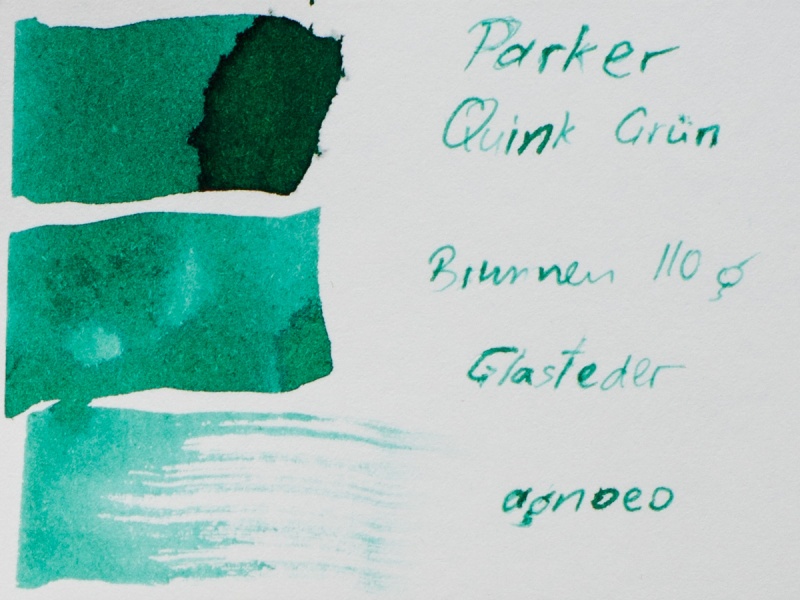 Parker
Quink Grün
Brunnen 110 g
Glasfeder
agnoeo